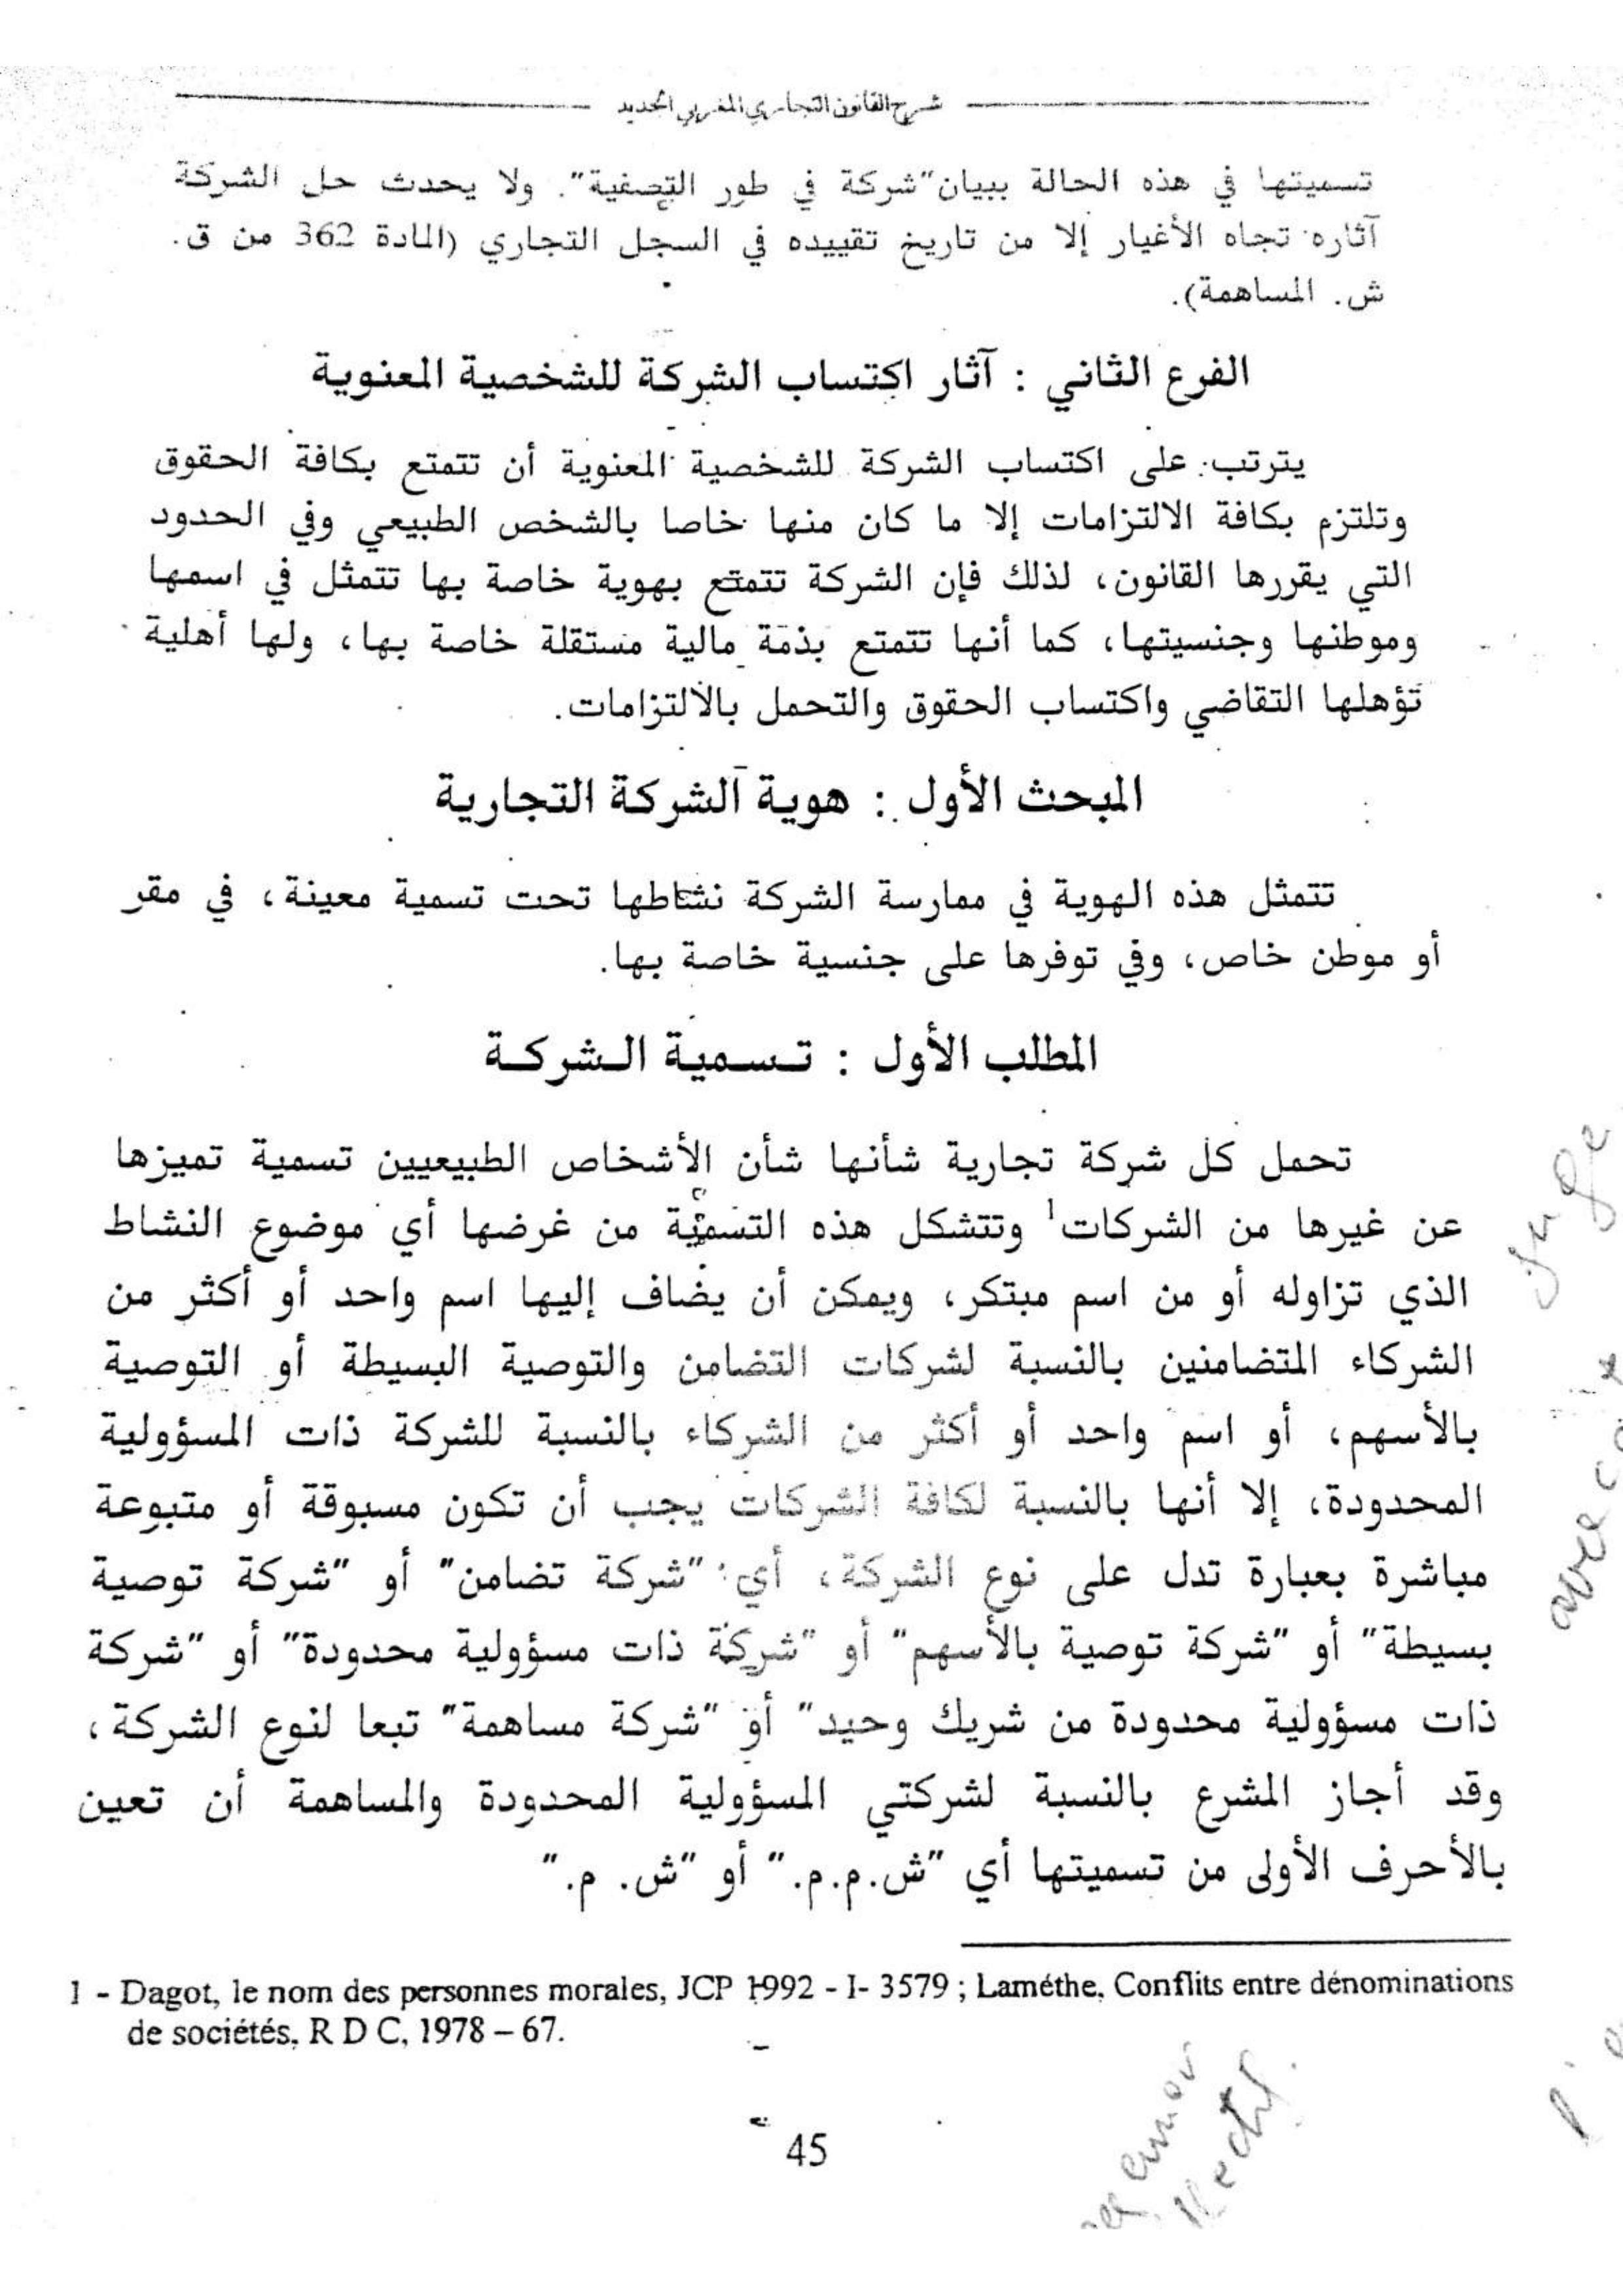 شرح القانون التجاري المغربي الجديد
تسميتها في هذه الحالة ببيان "شركة في طور التصفية". ولا يحدث حل الشركة
آثاره تجاه الأغيار إلا من تاريخ تقييده في السجل التجاري (المادة 362 من ق.
ش. المساهمة).
الفرع الثاني : آثار اكتساب الشركة للشخصية المعنوية
يترتب على اكتساب الشركة للشخصية المعنوية أن تتمتع بكافة الحقوق
وتلتزم بكافة الالتزامات إلا ما كان منها خاصا بالشخص الطبيعي وفي الحدود
التي يقررها القانون، لذلك فإن الشركة تتمتع بهوية خاصة بها تتمثل في اسمها
وموطنها وجنسيتها، كما أنها تتمتع بذمة مالية مستقلة خاصة بها، ولها أهلية
تؤهلها التقاضي واكتساب الحقوق والتحمل بالالتزامات.
المبحث الأول : هوية الشركة التجارية
تتمثل هذه الهوية في ممارسة الشركة نشاطها تحت تسمية معينة، في مقر
أو موطن خاص، وفي توفرها على جنسية خاصة بها.
المطلب الأول : تسمية الشركة
تحمل كل شركة تجارية شأنها شأن الأشخاص الطبيعيين تسمية تميزها
عن غيرها من الشركات1 وتتشكل هذه التسمية من غرضها أي موضوع النشاط
الذي تزاوله أو من اسم مبتكر، ويمكن أن يضاف إليها اسم واحد أو أكثر من
الشركاء المتضامنين بالنسبة لشركات التضامن والتوصية البسيطة أو التوصية
بالأسهم، أو اسم واحد أو أكثر من الشركاء بالنسبة للشركة ذات المسؤولية
المحدودة، إلا أنها بالنسبة لكافة الشركات يجب أن تكون مسبوقة أو متبوعة
مباشرة بعبارة تدل على نوع الشركة، أي: "شركة تضامن" أو "شركة توصية
بسيطة" أو "شركة توصية بالأسهم" أو "شركة ذات مسؤولية محدودة" أو "شركة
ذات مسؤولية محدودة من شريك وحيد" أو "شركة مساهمة" تبعا لنوع الشركة،
وقد أجاز المشرع بالنسبة لشركتي المسؤولية المحدودة والمساهمة أن تعين
بالأحرف الأولى من تسميتها أي "ش.م.م." أو "ش. م."
1 - Dagot, le nom des personnes morales, JCP 1992 - I- 3579 ; Laméthe, Conflits entre dénominations
de sociétés, R D C, 1978 – 67.
45